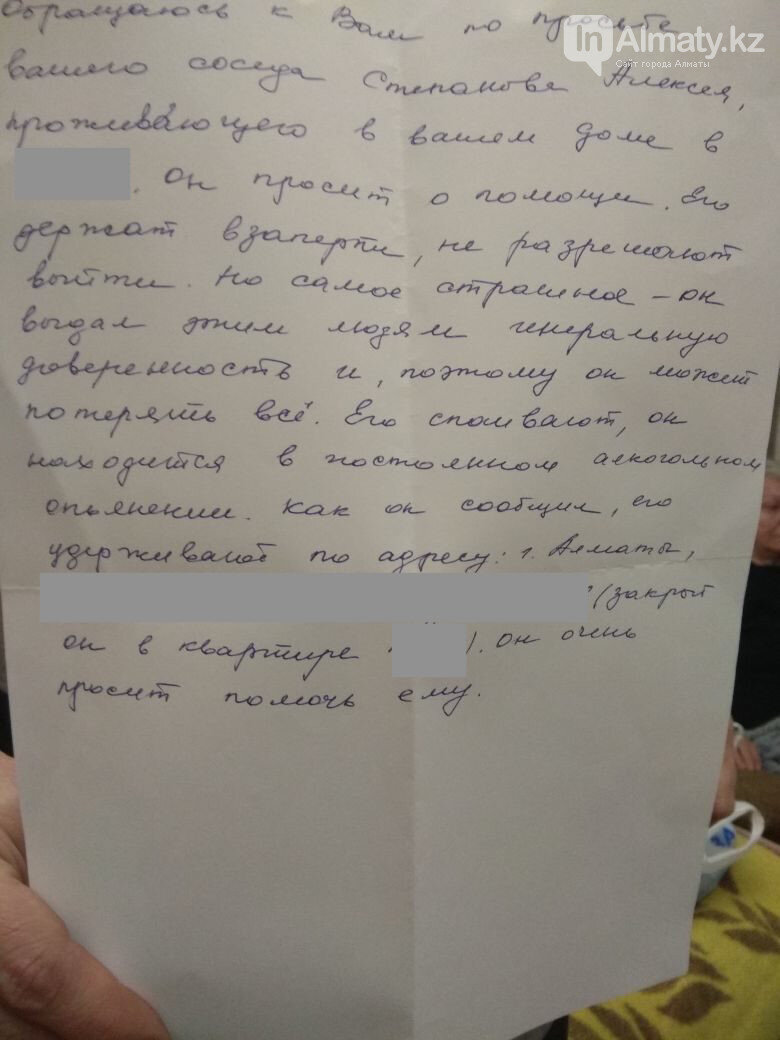 Обращаюсь к Вам по просьбе
inAlmaty.kz
Сайт города Алматы
вашего соседа Степанова Алексея,
проживающего в вашем доме в
. Он просит о помощи. Его
держат взаперти, не разрешают
выйти. Но самое страшное – он
выдал этим людям генеральную
доверенность и, поэтому он может
потерять всё. Его спаивают, он
находится в постоянном алкогольном
опьянении. Как он сообщил, его
удерживают по адресу: г. Алматы,
(закрыт
он в квартире ). Он очень
просит помочь ему.